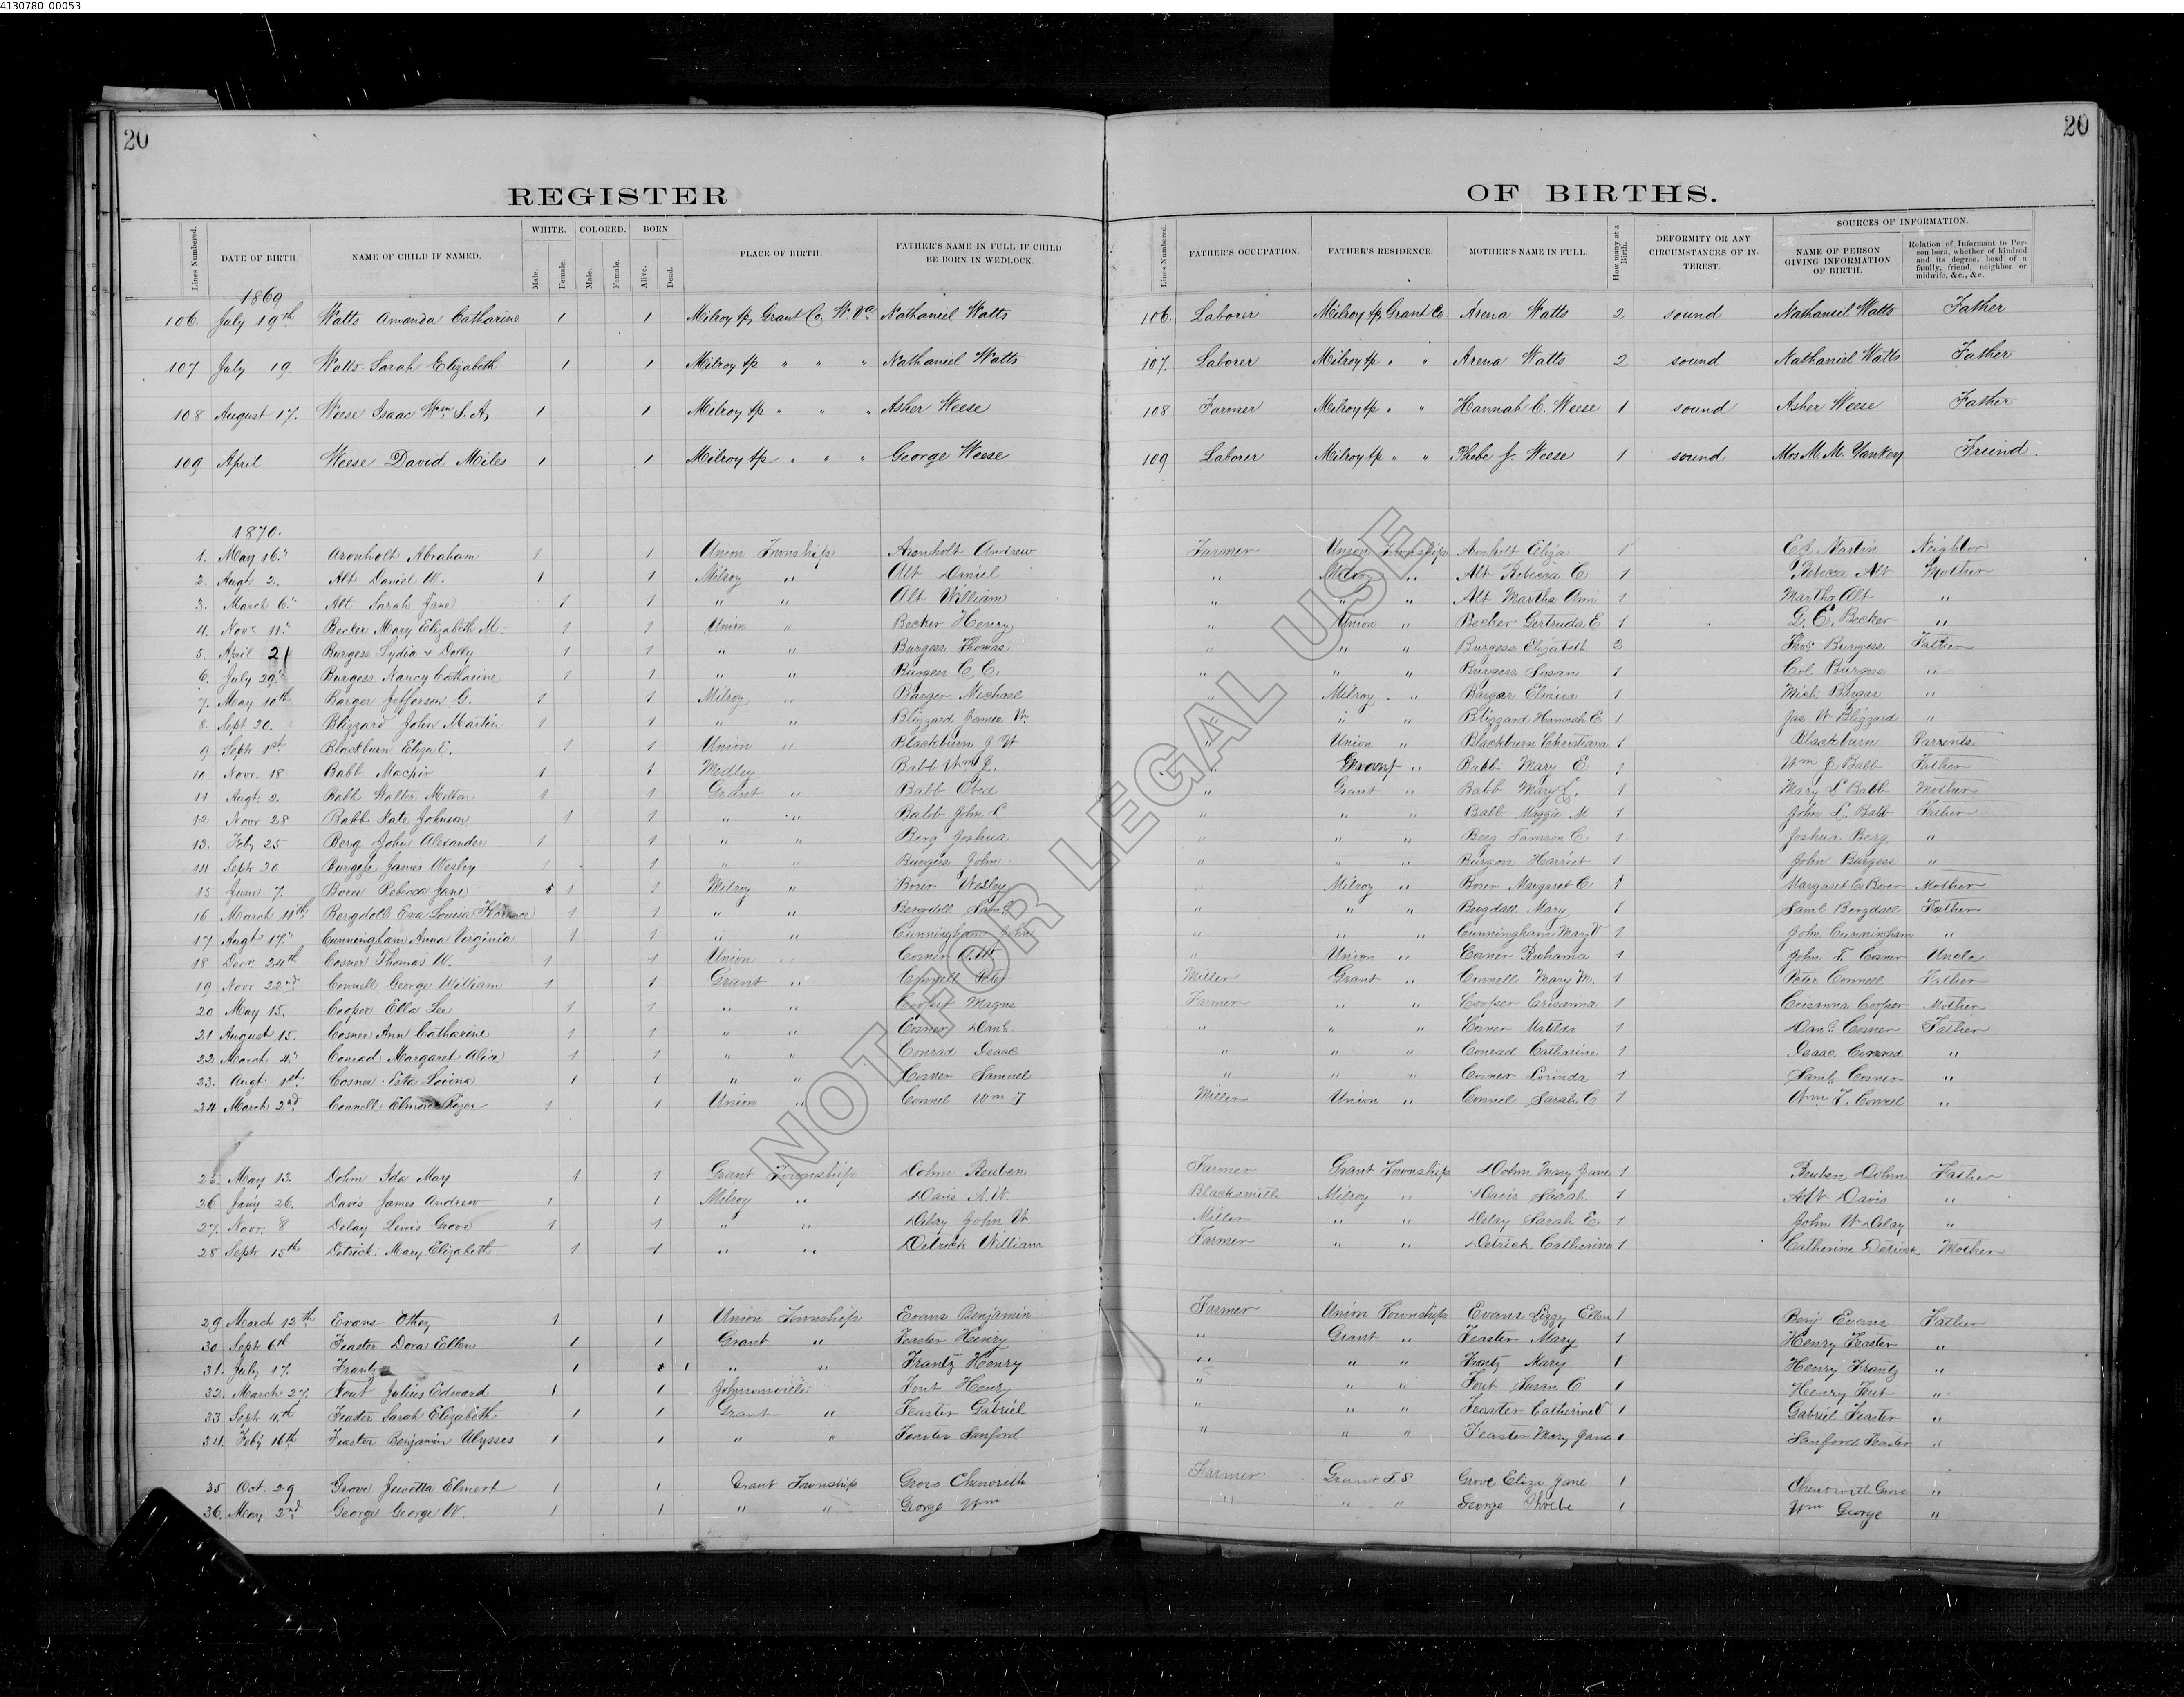 4130780_00053
20 20
REGISTER OF BIRTHS.
Lines Numbered. DATE OF BIRTH. NAME OF CHILD IF NAMED. WHITE. Male. Female. COLORED. Male. Female. BORN Alive. Dead. PLACE OF BIRTH. FATHER'S NAME IN FULL IF CHILD BE BORN IN WEDLOCK. Lines Numbered. FATHER'S OCCUPATION. FATHER'S RESIDENCE. MOTHER'S NAME IN FULL. How many at a Birth. DEFORMITY OR ANY CIRCUMSTANCES OF INTEREST. SOURCES OF INFORMATION. NAME OF PERSON GIVING INFORMATION OF BIRTH. Relation of Informant to Person born, whether of kindred and its degree, head of a family, friend, neighbor or midwife, &c., &c.
1869
106. July 19th Watts Amanda Catharine 1 1 Milroy tp, Grant Co, W. Va Nathaniel Watts 106. Laborer Milroy tp Grant Co. Arena Watts 2 sound Nathaniel Watts Father
107 July 19. Watts Sarah Elizabeth 1 1 Milroy tp " " " Nathaniel Watts 107. Laborer Milroy tp " " Arena Watts 2 sound Nathaniel Watts Father
108 August 17. Weese Isaac Wm S. A. 1 1 Milroy tp " " " Asher Weese 108 Farmer Milroy tp " " Hannah C. Weese 1 sound Asher Weese Father
109. April Weese David Miles 1 1 Milroy tp " " " George Weese 109 Laborer Milroy tp " " Phebe J. Weese 1 sound Mrs M. M. Yankey Friend.
1870.
1. May 16." Aronholt Abraham 1 1 Union Township Aronholt Andrew Farmer Union Township Aronholt Eliza 1 Martin Neighbor
2. Augt 2. Alt Daniel W. 1 1 Milroy " Alt Daniel " Milroy " Alt Rebecca C 1 Rebecca Alt Mother
3. March 6." Alt Sarah Jane 1 1 " " Alt William " " " Alt Martha Ami 1 Martha Alt "
4. Novr 11." Becker Mary Elizabeth M. 1 1 Union " Becker Henry " Union " Becker Gertruda E 1 G. E. Becker "
5. April 21 Burgess Lydia & Dolly 1 1 " " Burgess Thomas " " " Burgess Elizabeth 2 Thos Burgess Father
6. July 29." Burgess Nancy Catharine 1 1 " " Burgess C. C. " " " Burgess Susan 1 Burgess "
7. May 10th Barger Jefferson G. 1 1 Milroy " Barger Michael " Milroy " Barger Elmira 1 Mich. Bargar "
8. Sept 20. Blizzard John Martin 1 1 " " Blizzard James W. " " " Blizzard Hannah E 1 Jas W Blizzard "
9 Sept 1st Blackburn Eliza E. 1 1 Union " Blackburn J W " Union " Blackburn Christiana 1 Blackburn Parrents
10 Novr. 18 Babb Machir 1 1 Medley Babb Wm J. " Grant " Babb Mary E 1 Wm J Babb Father
11 Augt. 2. Babb Walter Milton 1 1 Grant " Babb Obed " Grant " Babb Mary 1 Mary Babb Mother
12 Novr 28 Babb Kate Johnson 1 1 " " Babb John L " " " Babb Maggie M 1 John L. Babb Father
13. Feby 25 Berg John Alexander 1 1 " " Berg Joshua " " " Berg Tamson C 1 Joshua Berg "
14 Sept 20 Burgess James Wesley 1 1 " " Burgess John " " " Burgess Harriet 1 John Burgess "
15 June 7. Borer Rebecca Jane 1 1 Milroy " Borer Wesley " Milroy " Borer Margaret C 1 Margaret C Borer Mother
16 March 11th Bergdoll Eva Louisa Florence 1 1 " " Bergdoll Saml " " " Bergdall Mary 1 Saml Bergdall Father
17 Augt 17." Cunningham Anna Virginia 1 1 " " Cunningham John " " " Cunningham Mary V 1 John Cunningham "
18 Decr 24th Cosner Thomas W. 1 1 Union " Cosner A. W. " Union " Cosner Ruhama 1 John F. Cosner Uncle
19 Novr 22nd Connell George William 1 1 Grant " Connell Peter Miller Grant " Connell Mary M. 1 Peter Connell Father
20 May 15. Cooper Ella Lee 1 1 " " Cooper Magns Farmer " " Cooper Crisanna 1 Crisanna Cooper Mother
21 August 15. Cosner Ann Catharine 1 1 " " Cosner Danl " " " Cosner Matilda 1 Danl Cosner Father
22 March 4." Conrad Margaret Alice 1 1 " " Conrad Isaac " " " Conrad Catharine 1 Isaac Conrad "
23. Augt. 1st. Cosner Esta Lovina 1 1 " " Cosner Samuel " " " Cosner Lorinda 1 Saml. Cosner "
24 March 2nd. Connell Elmore 1 1 Union " Connel Wm F Miller Union " Connel Sarah C 1 Wm F. Connel "
25. May 13. Dohm Ida May 1 1 Grant Township Dohm Reuben Farmer Grant Township Dohm Mary Jane 1 Reuben Dohm Father
26 Jany 26. Davis James Andrew 1 1 Milroy " Davis A. W. Blacksmith Milroy " Davis Sarah 1 A W Davis "
27. Novr. 8 Delay Lewis Grove 1 1 " " Delay John W. Miller " " Delay Sarah E 1 John W Delay "
28 Sept 15th Detrick Mary Elizabeth 1 1 " " Detrick William Farmer " " Detrick Catherine 1 Catherine Detrick Mother
29 March 12th Evans Othey 1 1 Union Township Evans Benjamin Farmer Union Township Evans Lizzy Ellen 1 Benj. Evans Father
30 Sept 6th Feaster Dora Ellen 1 1 Grant " Feaster Henry " Grant " Feaster Mary 1 Henry Feaster "
31. July 17. Frantz 1 1 " " Frantz Henry " " " Frantz Mary 1 Henry Frantz "
32. March 27. Fout Julius Edward 1 1 Johnsonville Fout Henry " " " Fout Susan C 1 Henry Fout "
33 Sept 4th Feaster Sarah Elizabeth 1 1 Grant " Feaster Gabriel " " " Feaster Catherine V 1 Gabriel Feaster "
34. Feby 16th Feaster Benjamin Ulysses 1 1 " " Feaster Sanford " " " Feaster Mary Jane 1 Sanford Feaster "
35 Oct. 29 Grove Elmert 1 1 Grant Township Grove Chenoreth Farmer Grant T. S Grove Eliza Jane 1 Chenowith Grove "
36. May 2nd. George George W. 1 1 " " George Wm " " " George Phoebe 1 Wm George "
NOT FOR LEGAL USE